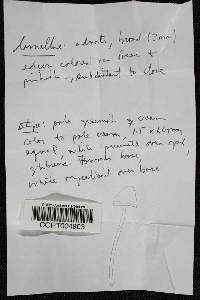 Lamellae: adnate, broad (3mm)
edges colors on face &
pinkish., subdistant to close
Stipe: pale greenish & cream
color to pale cream, 1.5 x 66mm,
equal, white pruinate over apex,
glabrous towards base,
white mycelioid over base